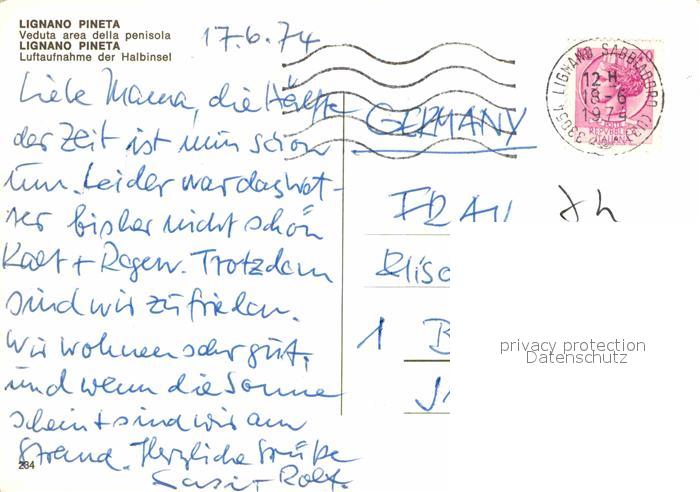 LIGNANO PINETA
Veduta area della penisola
LIGNANO PINETA
Luftaufnahme der Halbinsel
17.6.74
Liebe Mama, die Hälfte
der Zeit ist nun schon
um. Leider war das Wet-
ter bisher nicht schön
Kalt + Regen. Trotzdem
sind wir zufrieden.
Wir wohnen sehr gut,
und wenn die Sonne
scheint sind wir am
Strand. Herzliche Grüße
Rolf.
234
33054 LIGNANO SABBIADORO (UD)
12 H
18-6
1974
REPUBBLICA
ITALIANA
GERMANY
FRAU
Elisa
1 B
privacy protection
Datenschutz